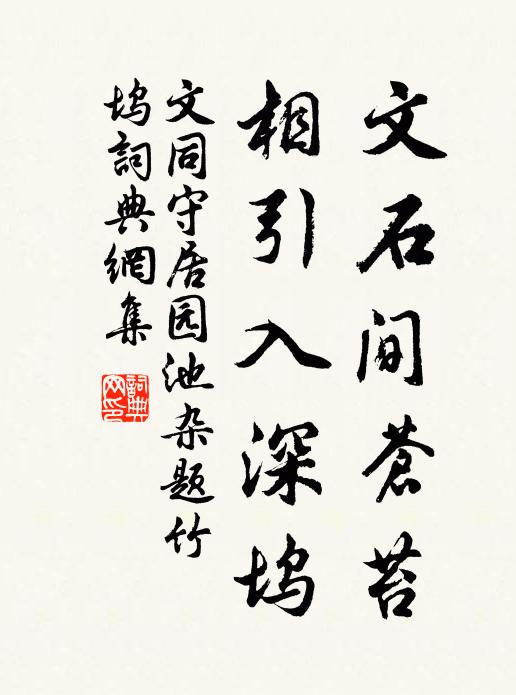 文石间蒼苔
相引入深坞
文同守居园池杂题竹
坞詞典網集
詞典网印